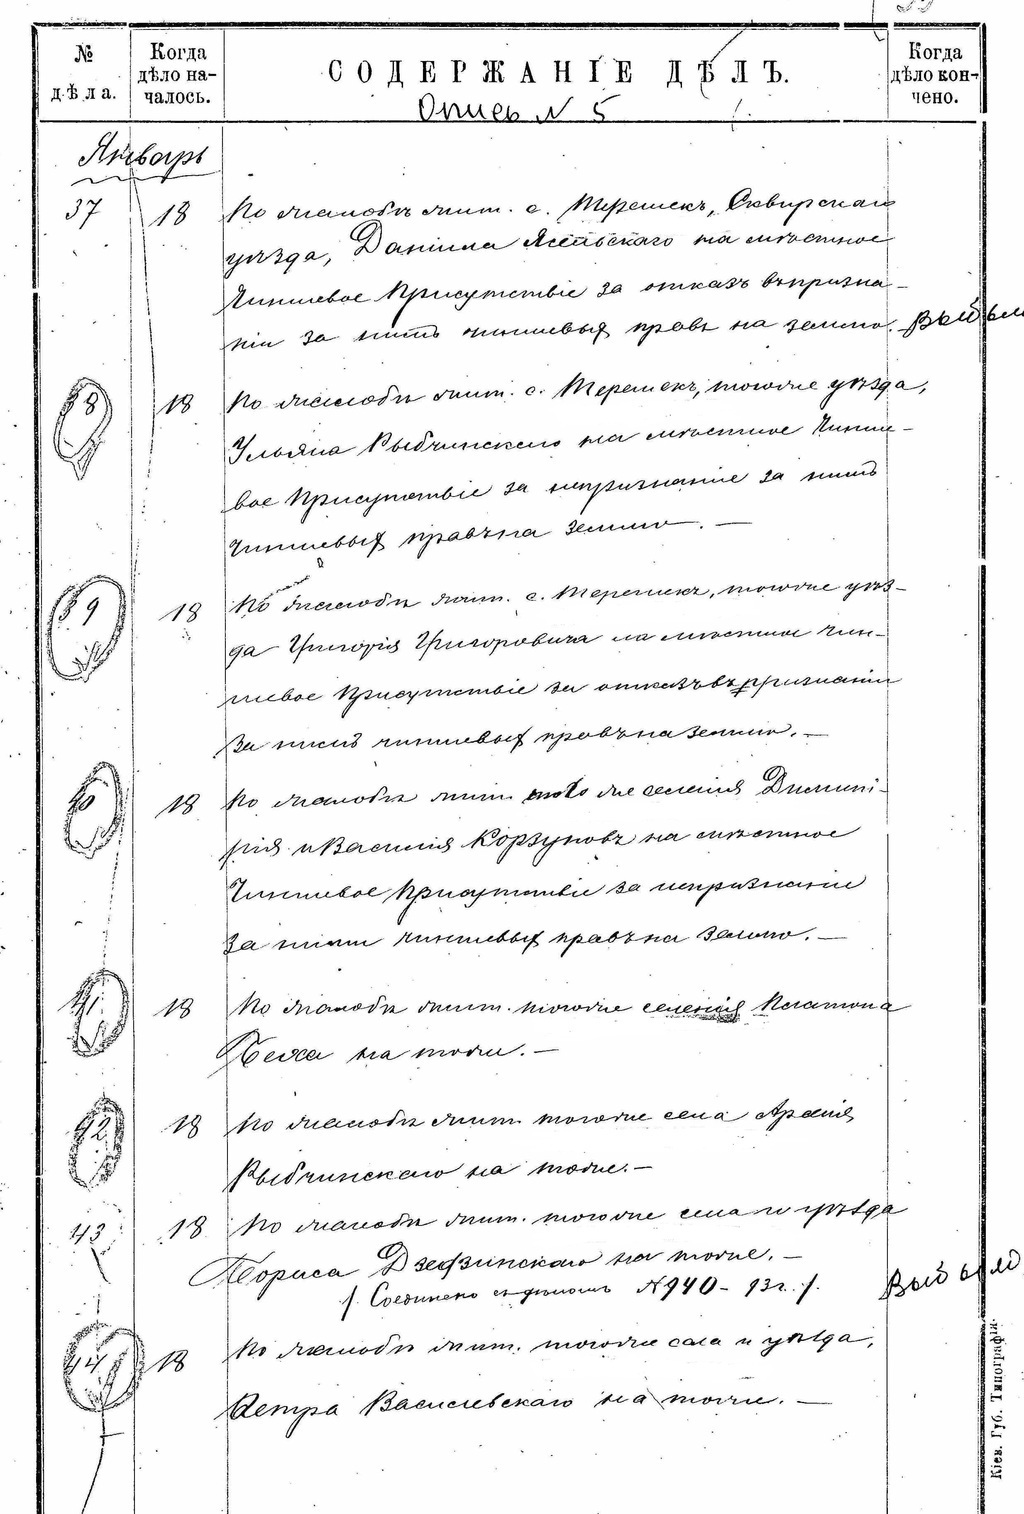 № дѣла.
Когда дѣло началось.
СОДЕРЖАНІЕ ДѢЛЪ.
Когда дѣло кончено.
Опись N 5
Январь
37 18 По жалобѣ жит. с. Терешекъ, Сквирскаго
уѣзда, Даніила на мѣстное
Чиншевое Присутствіе за отказъ въ призна-
ніи за нимъ чиншевыхъ правъ на землю. Выбыло
38 18 По жалобѣ жит. с. Терешекъ, тогоже уѣзда,
Ульяна Рыбчинскаго на мѣстное Чинше-
вое Присутствіе за непризнаніе за нимъ
чиншевыхъ правъ на землю. —
39 18 По жалобѣ жит. с. Терешекъ, тогоже уѣз-
да Григорія Григоровича на мѣстное Чин-
шевое Присутствіе за отказъ въ признаніи
за нимъ чиншевыхъ правъ на землю. —
40 18 По жалобѣ жит. того же селенія Димит-
рія и Василія Корзуновъ на мѣстное
Чиншевое Присутствіе за непризнаніе
за ними чиншевыхъ правъ на землю. —
41 18 По жалобѣ жит. тогоже селенія Платона
на тоже. —
42 18 По жалобѣ жит. тогоже села
Рыбчинскаго на тоже. —
43 18 По жалобѣ жит. тогоже села и уѣзда
Бориса на тоже. —
/. Соединено съ дѣломъ N 940 – 93 г. /. Выбыло
44 18 По жалобѣ жит. тогоже села и уѣзда,
Петра Василевскаго на тоже. —
Кіев. Губ. Типографія.